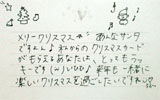 メリークリスマス あんなサンタ
ですれん♪ わたからのクリスマスカード
がもらえるあなたは、とってもラッ
キーです(ω)いひひ♪ 来年も一緒に
楽しいクリスマスを過ごしたいですれ!!